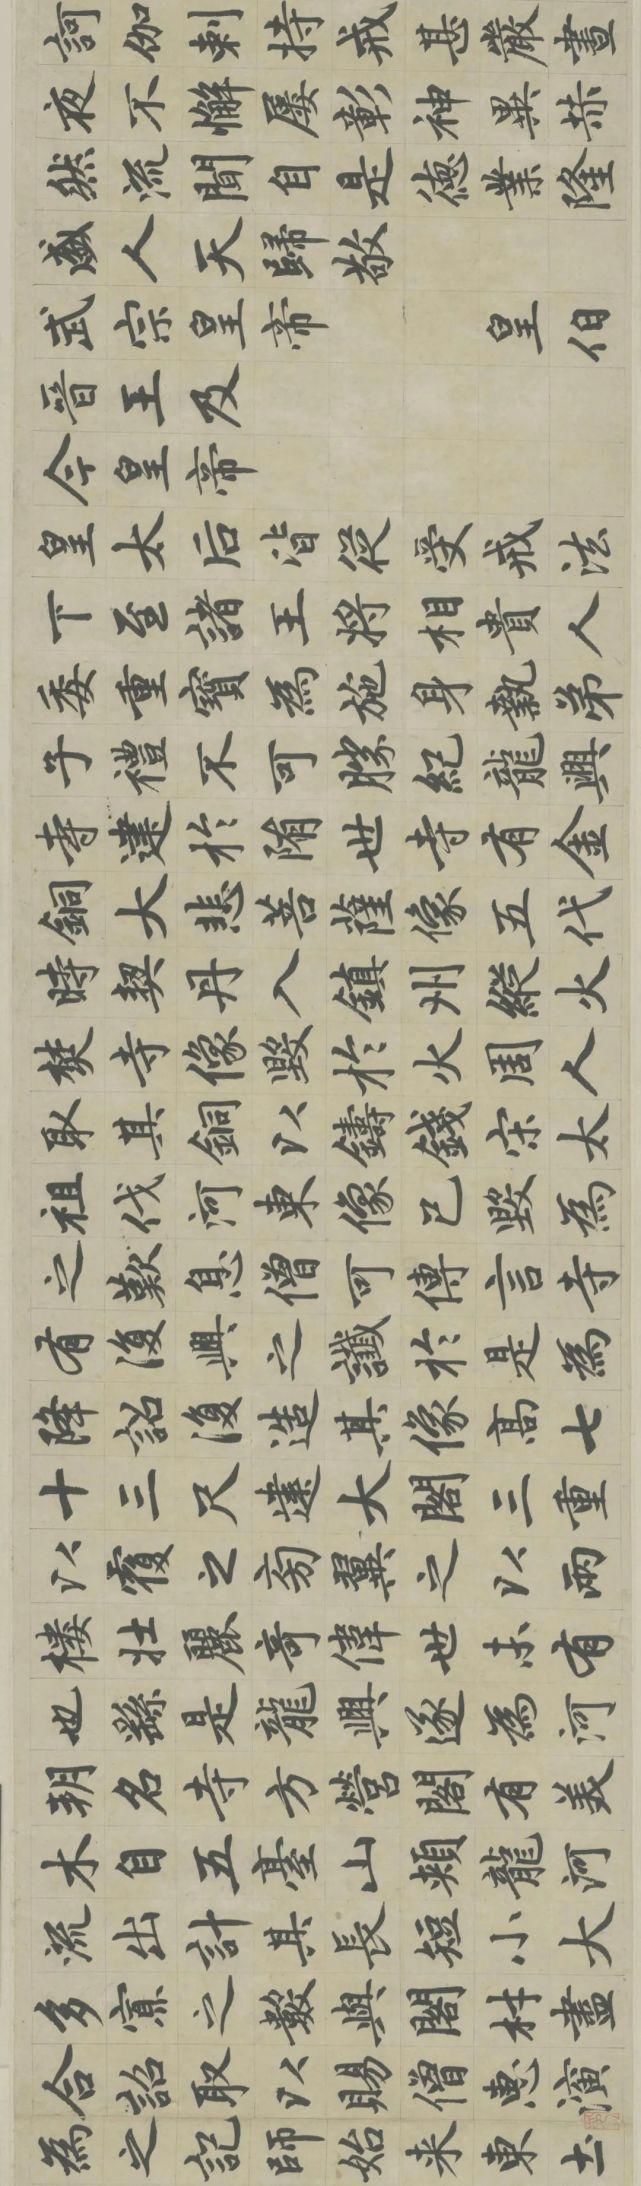 訶伽剌持戒甚嚴晝
夜不懈屢彰神異赫
然流聞自是德業隆
盛人天歸敬
武宗皇帝　　皇伯
晉王及
今皇帝
皇太后皆從受戒法
下至諸王將相貴人
委重寶為施身執弟
子禮不可勝紀龍興
寺建於隋世寺有金
銅大悲菩薩像五代
時契丹入鎮州縱火
焚寺像毀於火周人
取其銅以鑄錢宋太
祖伐河東像已毀為
之歎息僧可傳言寺
有復興之讖於是為
降詔復造其像高七
十三尺建大閣三重
以覆之旁翼之以兩
樓壯麗奇偉世未有
也繇是龍興遂為河
朔名寺方營閣有美
木自五臺山頰龍河
流出計其長短小大
多寡之數與閣材盡
合詔取以賜僧惠演
為之記師始來東土